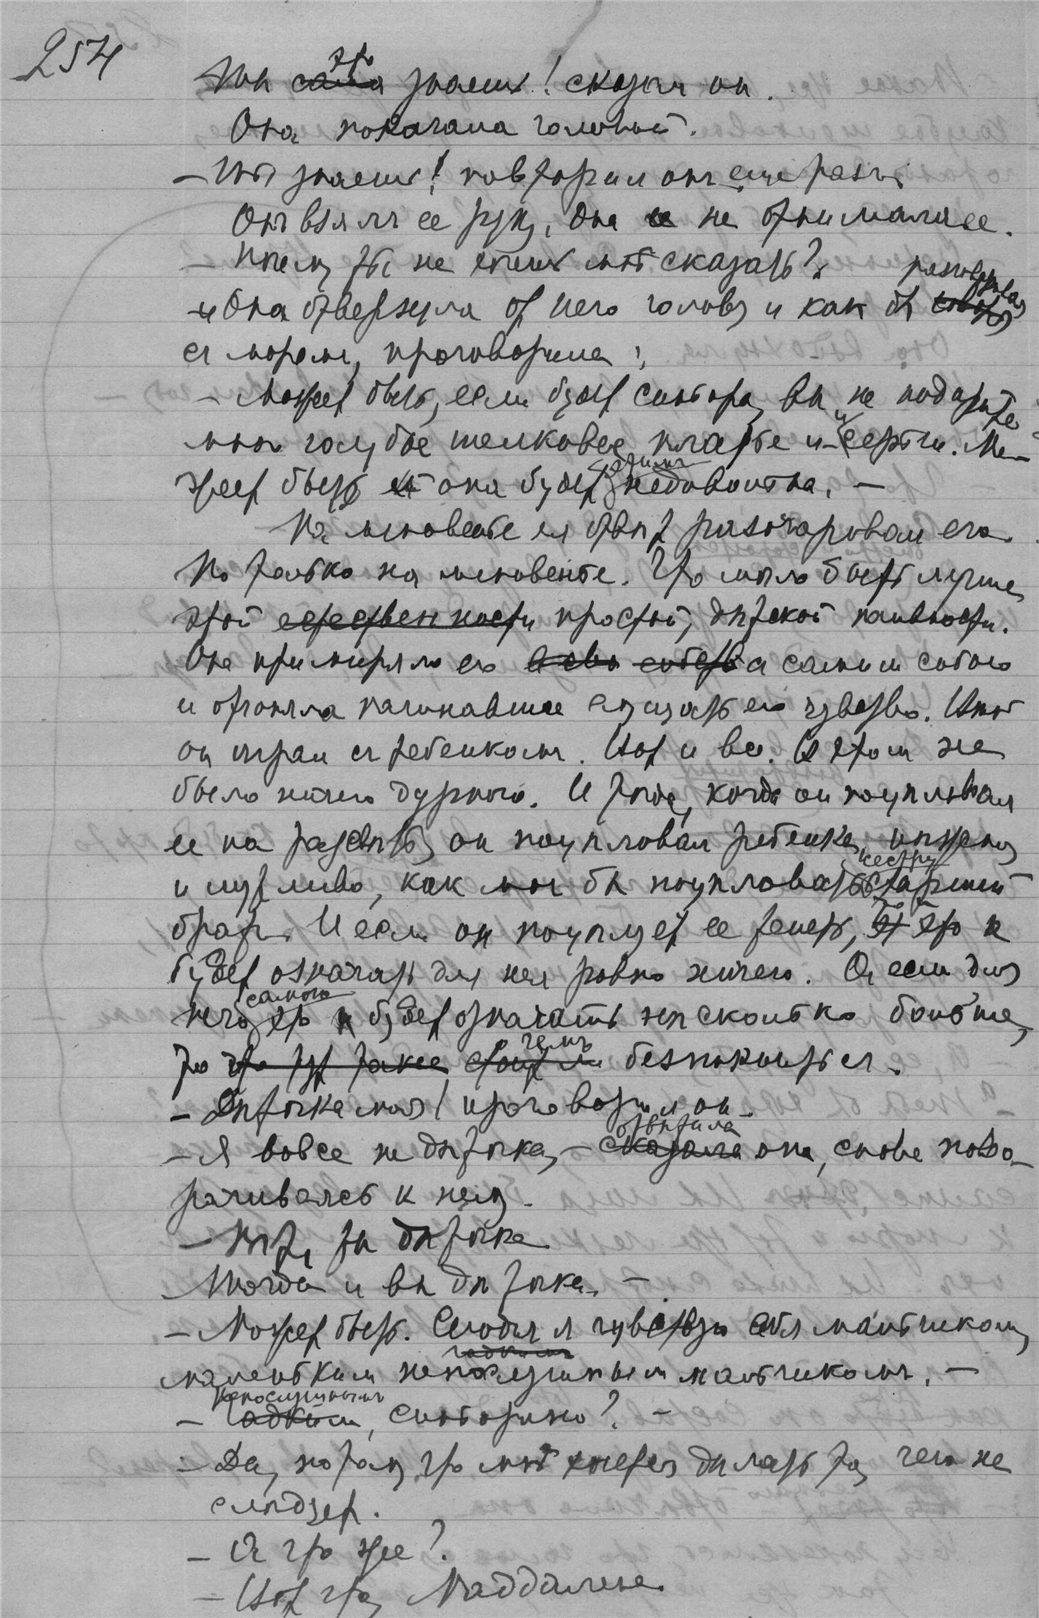 254
Ты это знаешь! сказал он.
Она покачала головой.
– Ты знаешь! повторил онъ еще разъ.
Онъ взялъ ее руку, она не отнимала ее.
– Почему ты не хочешь мнѣ сказать?
Она отвернула от него голову и как бы разговаривая
съ моремъ, проговорила:
– Может быть, если будет синьора, вы не подарите
мнѣ голубое шелковое платье и серьги. Мо-
жет быть она будет недовольна. –
На мгновенье ея отвѣт разочаровал его.
Но только на мгновенье. Что могло быть лучше
этой естественности простой, дѣтской наивности.
Она примиряла его съ самим собою
и отгоняла начинавшее его чувство.
он играл съ ребенкомъ. Вот и все. В этом не
было ничего дурного. И тогда, когда он поцѣловал
ее на он поцѣловал ребенка, нѣжно
и шутливо, как бы поцѣловать сестру старший
брат. И если он поцѣлует ее теперь, то это не
будет означать для нея ровно ничего. А если для
него самого это будет означать нѣсколько больше,
то чѣмъ безпокоиться.
– Дѣточка моя! проговорил он.
– Я вовсе не дѣточка, – отвѣтила она, снова пово-
рачиваясь к нему.
– Нѣт, ты дѣточка
Тогда и вы дѣточка. –
– Может быть. Сегодня я чувствую себя мальчиком,
маленьким гадкимъ мальчикомъ. –
– Непослушнымъ, синьорино? –
– Да, потому что мнѣ хочется дѣлать то, чего не
слѣдует.
– А что же?
– Вот что, Маддалена.